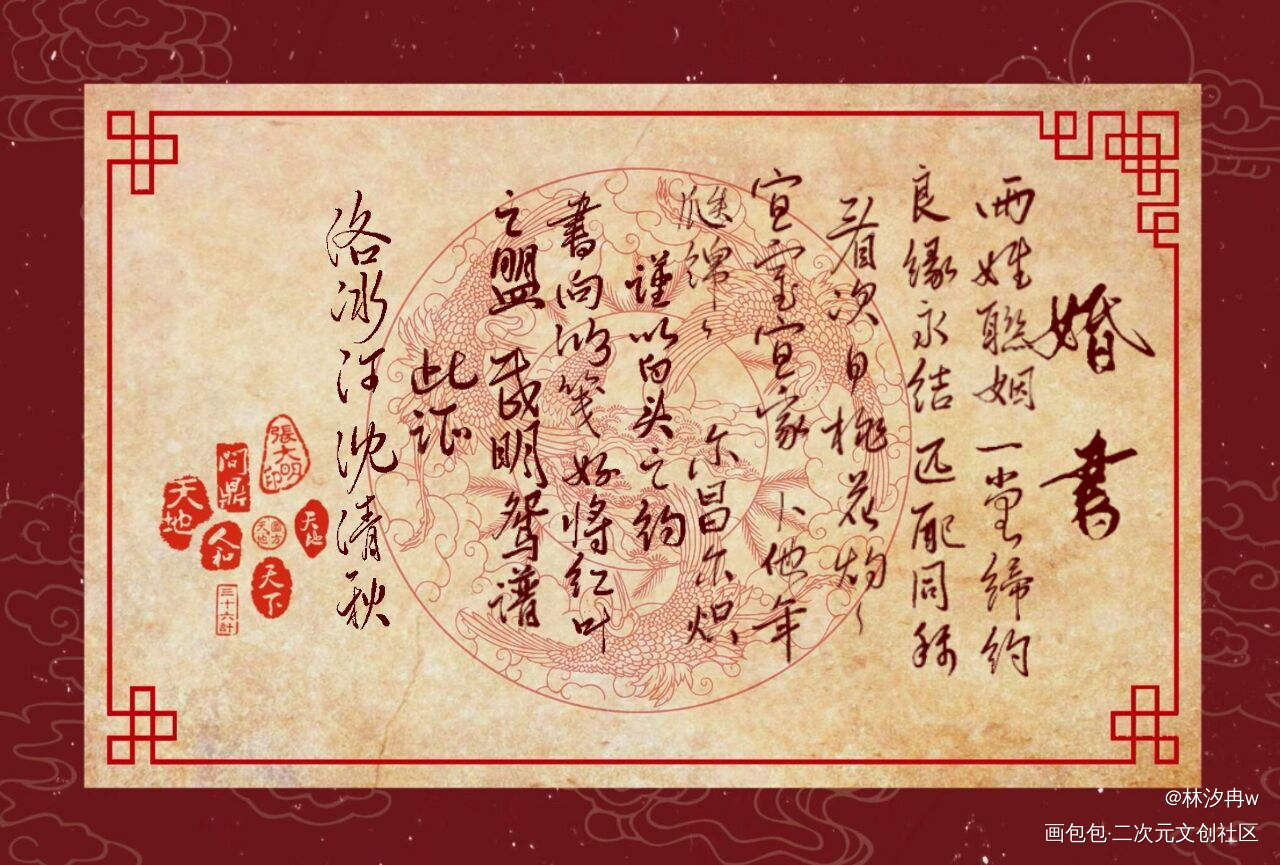 婚書
兩姓聯姻 一堂締約
良緣永結 匹配同稱
看次日桃花灼灼
宜室宜家 卜他年
瓜瓞綿綿 尔昌尔炽
謹以白头之约
書向鸿箋 好将红叶
之盟 載明鸳譜
此证
洛冰河沈清秋
張大明印
问鼎
天地
人和
天地
天下
三十六計
@林汐冉w
画包包·二次元文创社区